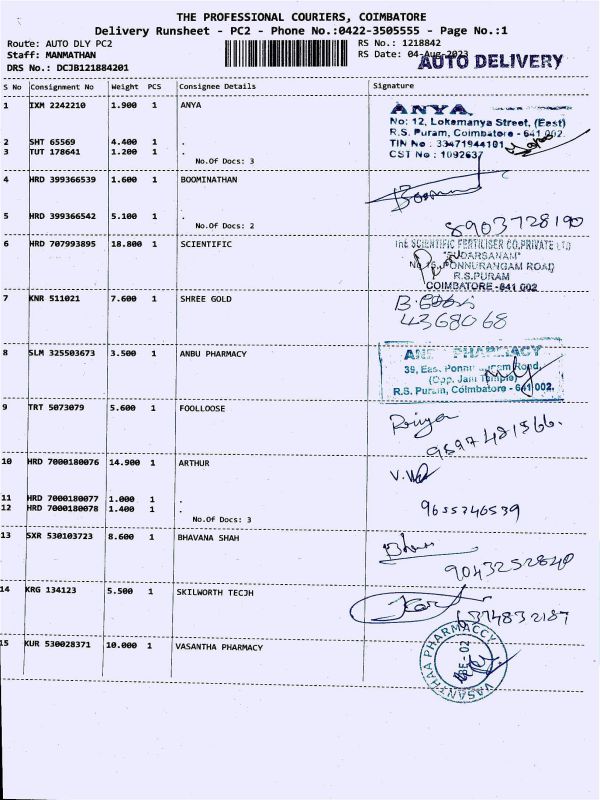 THE PROFESSIONAL COURIERS, COIMBATORE
Delivery Runsheet - PC2 - Phone No.:0422-3505555 - Page No.:1
Route: AUTO DLY PC2 RS No.: 1218842
Staff: MANMATHAN RS Date: 04-Aug-2023
AUTO DELIVERY
DRS No.: DCJB121884201
S No Consignment No Weight PCS Consignee Details Signature
1 IXM 2242210 1.900 1 ANYA
ANYA.
No: 12, Lokamanya Street, (East)
R.S. Puram, Coimbatore - 641 002.
2 SHT 65569 4.400 1 .
TIN No : 33471944101
3 TUT 178641 1.200 1 .
CST No : 1092637
No.Of Docs: 3
4 HRD 399366539 1.600 1 BOOMINATHAN
5 HRD 399366542 5.100 1 .
No.Of Docs: 2
8903728190
6 HRD 707993895 18.800 1 SCIENTIFIC
THE SCIENTIFIC FERTILISER CO.PRIVATE LTD
"SUDARSANAM"
PONNURANGAM ROAD
R.S.PURAM
COIMBATORE -641 002
7 KNR 511021 7.600 1 SHREE GOLD
4368068
8 SLM 325503673 3.500 1 ANBU PHARMACY
PHARMACY
39, East Ponnurangam Road,
(Opp. Jain Temple)
R.S. Puram, Coimbatore - 641 002.
9 TRT 5073079 5.600 1 FOOLLOOSE
Priya
10 HRD 7000180076 14.900 1 ARTHUR
11 HRD 7000180077 1.000 1 .
12 HRD 7000180078 1.400 1 .
9655746539
No.Of Docs: 3
13 SXR 530103723 8.600 1 BHAVANA SHAH
9043252840
14 KRG 134123 5.500 1 SKILWORTH TECJH
6374832187
15 KUR 530028371 10.000 1 VASANTHA PHARMACY
VASANTHAA PHARMACCY